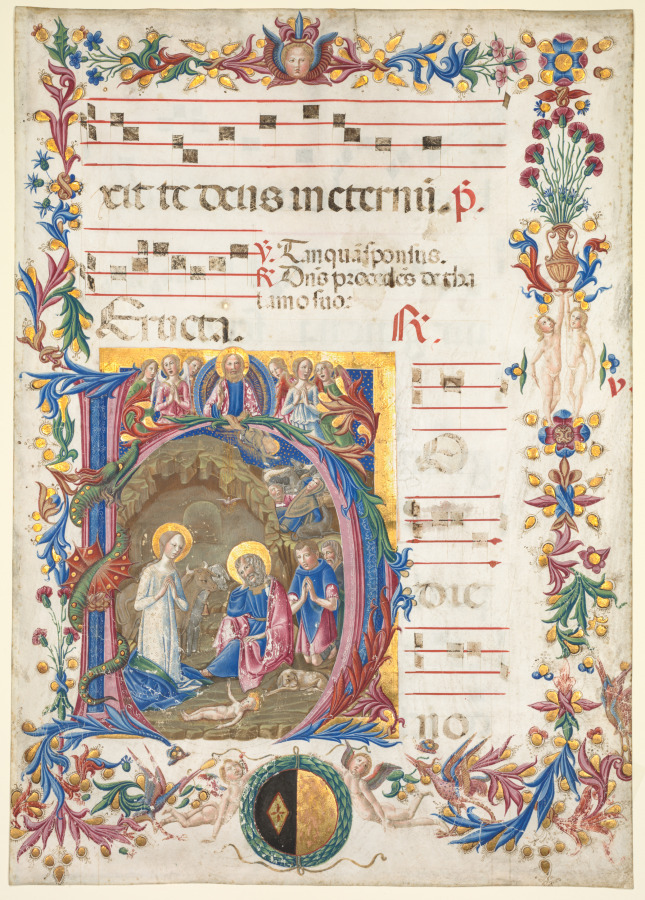 xit te deus in eternū. p̄.
V. Tanquā sponsus.
R. Dn̄s procedēs de tha
lamo suo:
Eructa. R.
v.
H
O
DIE
NO